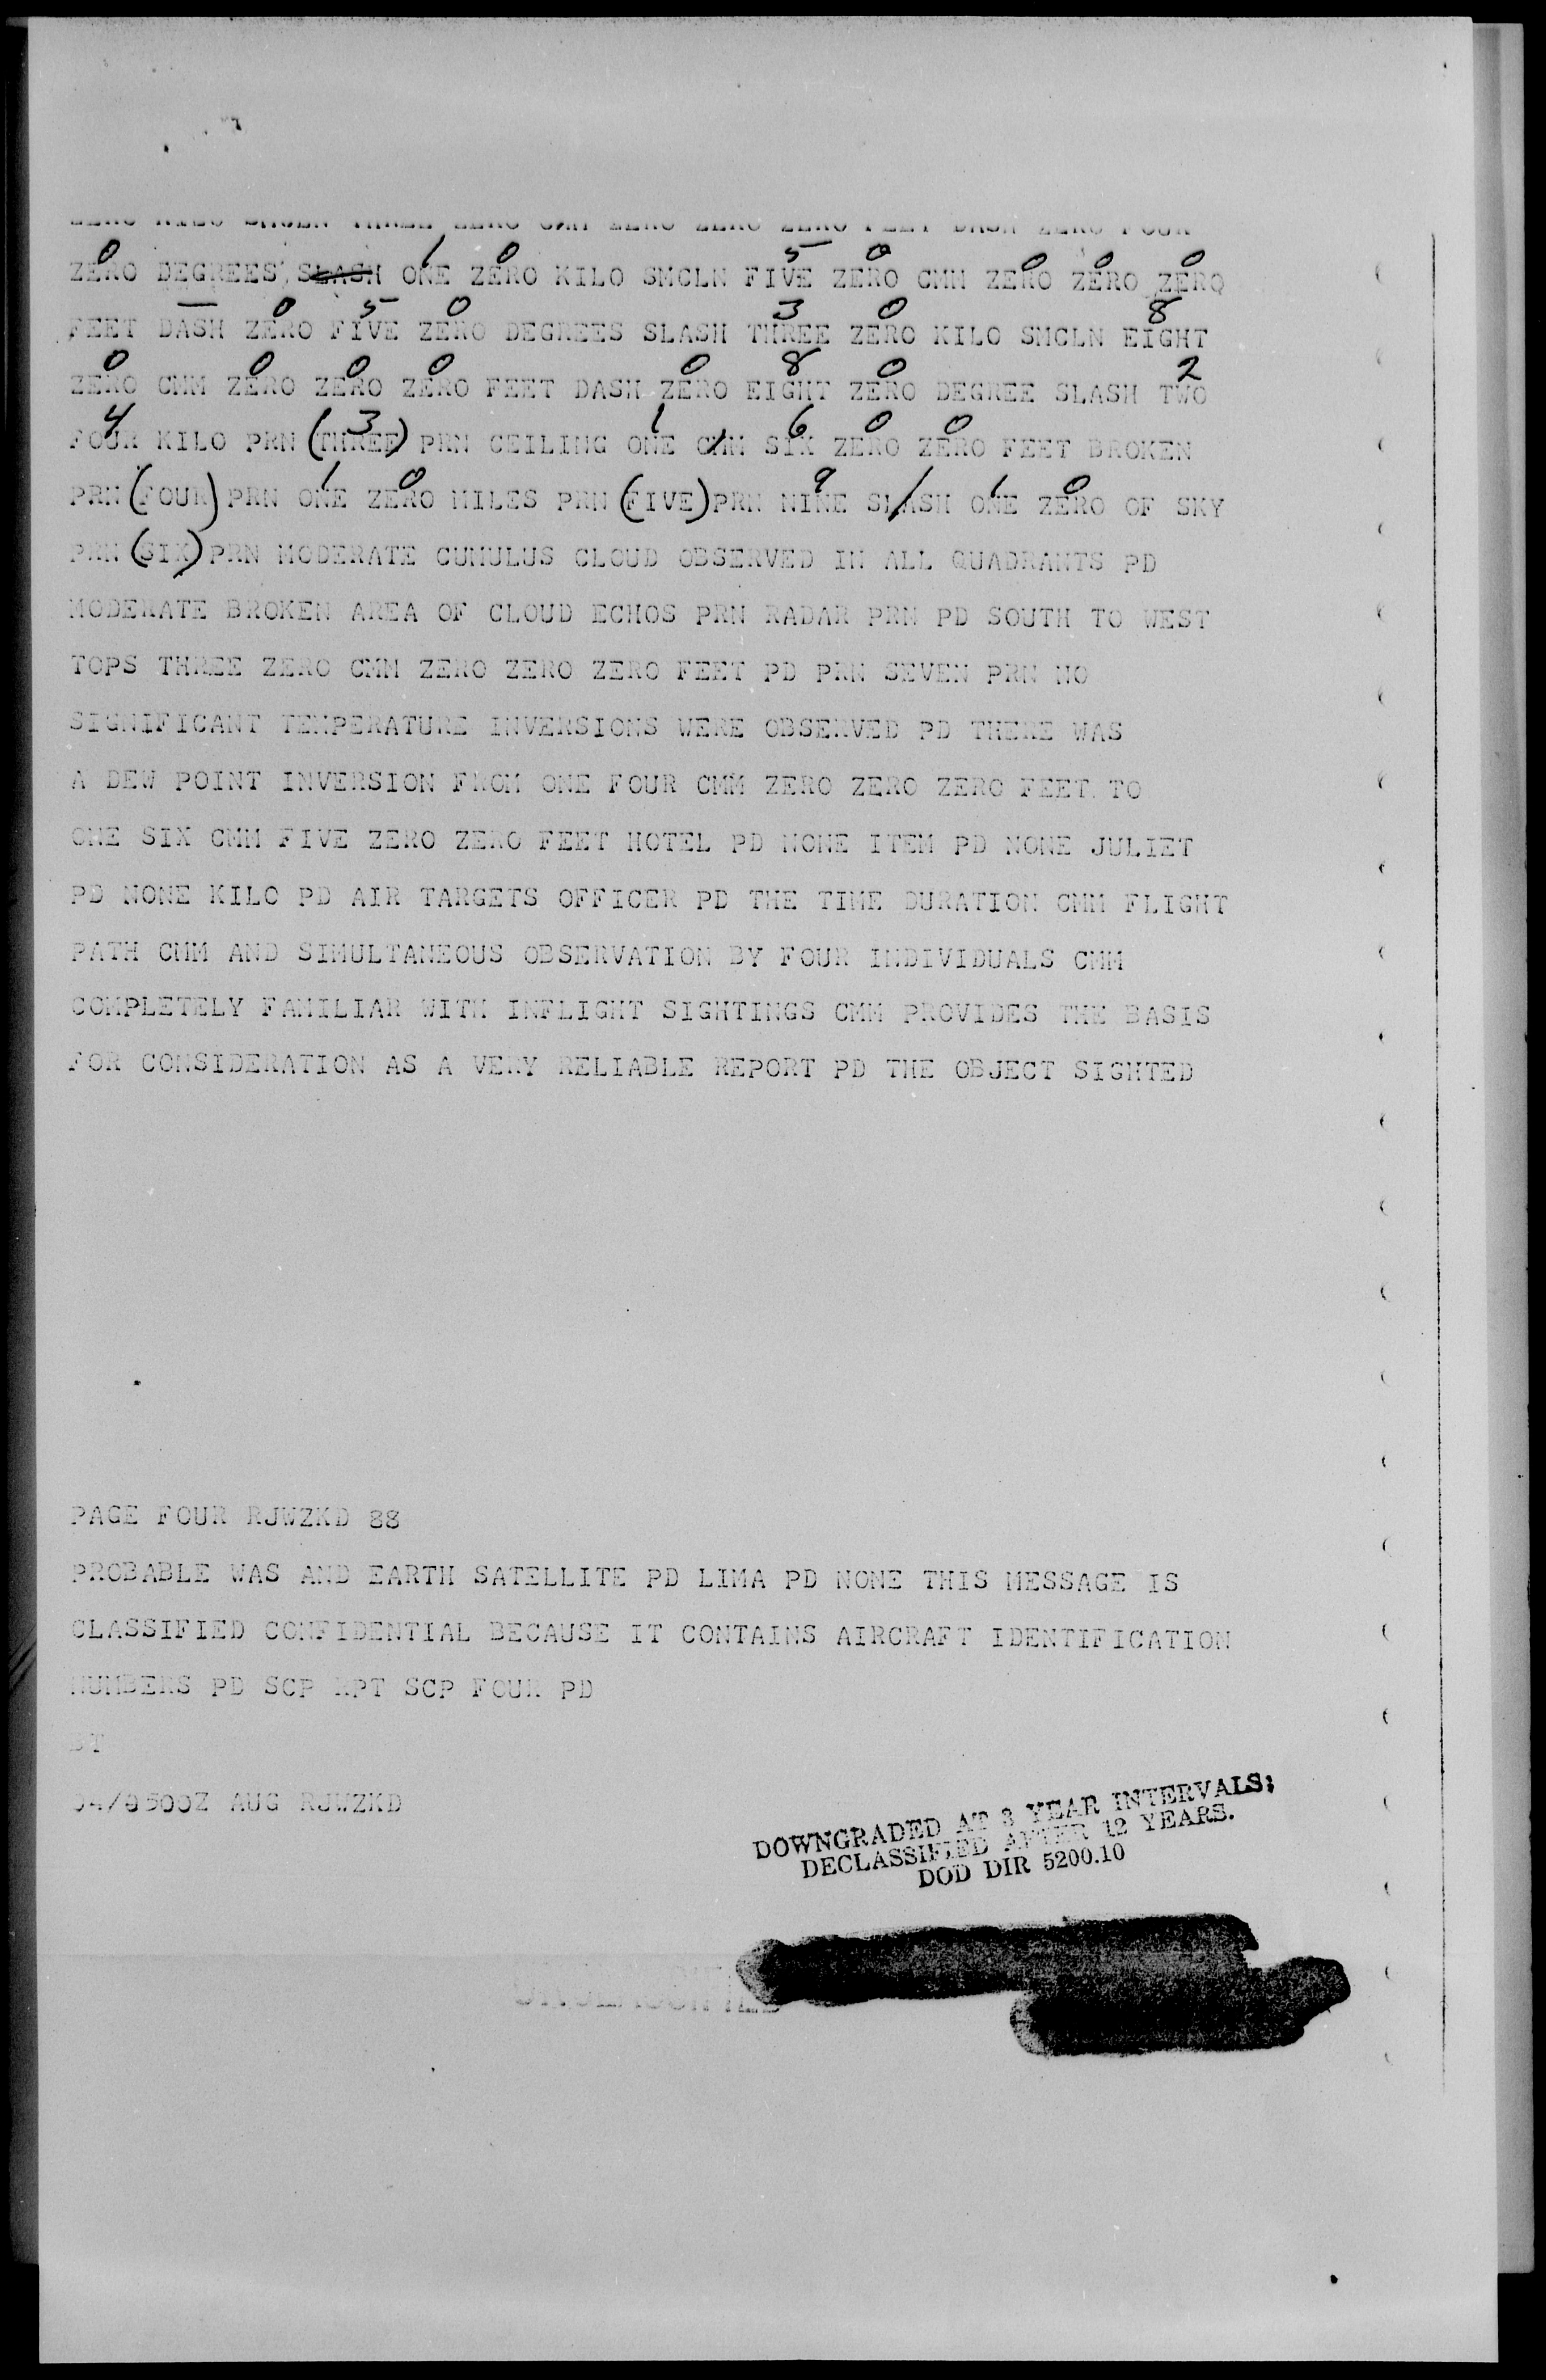 ZERO KILO SMCLN THREE ZERO CMM ZERO ZERO ZERO FEET DASH ZERO FOUR
0 1 0 5 0 0 0 0
ZERO DEGREES SLASH ONE ZERO KILO SMCLN FIVE ZERO CMM ZERO ZERO ZERO
— 0 5 0 3 0 8
FEET DASH ZERO FIVE ZERO DEGREES SLASH THREE ZERO KILO SMCLN EIGHT
0 0 0 0 0 8 0 2
ZERO CMM ZERO ZERO ZERO FEET DASH ZERO EIGHT ZERO DEGREE SLASH TWO
4 3 1 6 0 0
FOUR KILO PRN (THREE) PRN CEILING ONE CMM SIX ZERO ZERO FEET BROKEN
1 0 9 / 1 0
PRN (FOUR) PRN ONE ZERO MILES PRN (FIVE) PRN NINE SLASH ONE ZERO OF SKY
PRN (SIX) PRN MODERATE CUMULUS CLOUD OBSERVED IN ALL QUADRANTS PD
MODERATE BROKEN AREA OF CLOUD ECHOS PRN RADAR PRN PD SOUTH TO WEST
TOPS THREE ZERO CMM ZERO ZERO ZERO FEET PD PRN SEVEN PRN NO
SIGNIFICANT TEMPERATURE INVERSIONS WERE OBSERVED PD THERE WAS
A DEW POINT INVERSION FROM ONE FOUR CMM ZERO ZERO ZERO FEET TO
ONE SIX CMM FIVE ZERO ZERO FEET HOTEL PD NONE ITEM PD NONE JULIET
PD NONE KILO PD AIR TARGETS OFFICER PD THE TIME DURATION CMM FLIGHT
PATH CMM AND SIMULTANEOUS OBSERVATION BY FOUR INDIVIDUALS CMM
COMPLETELY FAMILIAR WITH INFLIGHT SIGHTINGS CMM PROVIDES THE BASIS
FOR CONSIDERATION AS A VERY RELIABLE REPORT PD THE OBJECT SIGHTED
PAGE FOUR RJWZKD 88
PROBABLE WAS AND EARTH SATELLITE PD LIMA PD NONE THIS MESSAGE IS
CLASSIFIED CONFIDENTIAL BECAUSE IT CONTAINS AIRCRAFT IDENTIFICATION
NUMBERS PD SCP RPT SCP FOUR PD
BT
04/0500Z AUG RJWZKD
DOWNGRADED AT 3 YEAR INTERVALS;
DECLASSIFIED AFTER 12 YEARS.
DOD DIR 5200.10